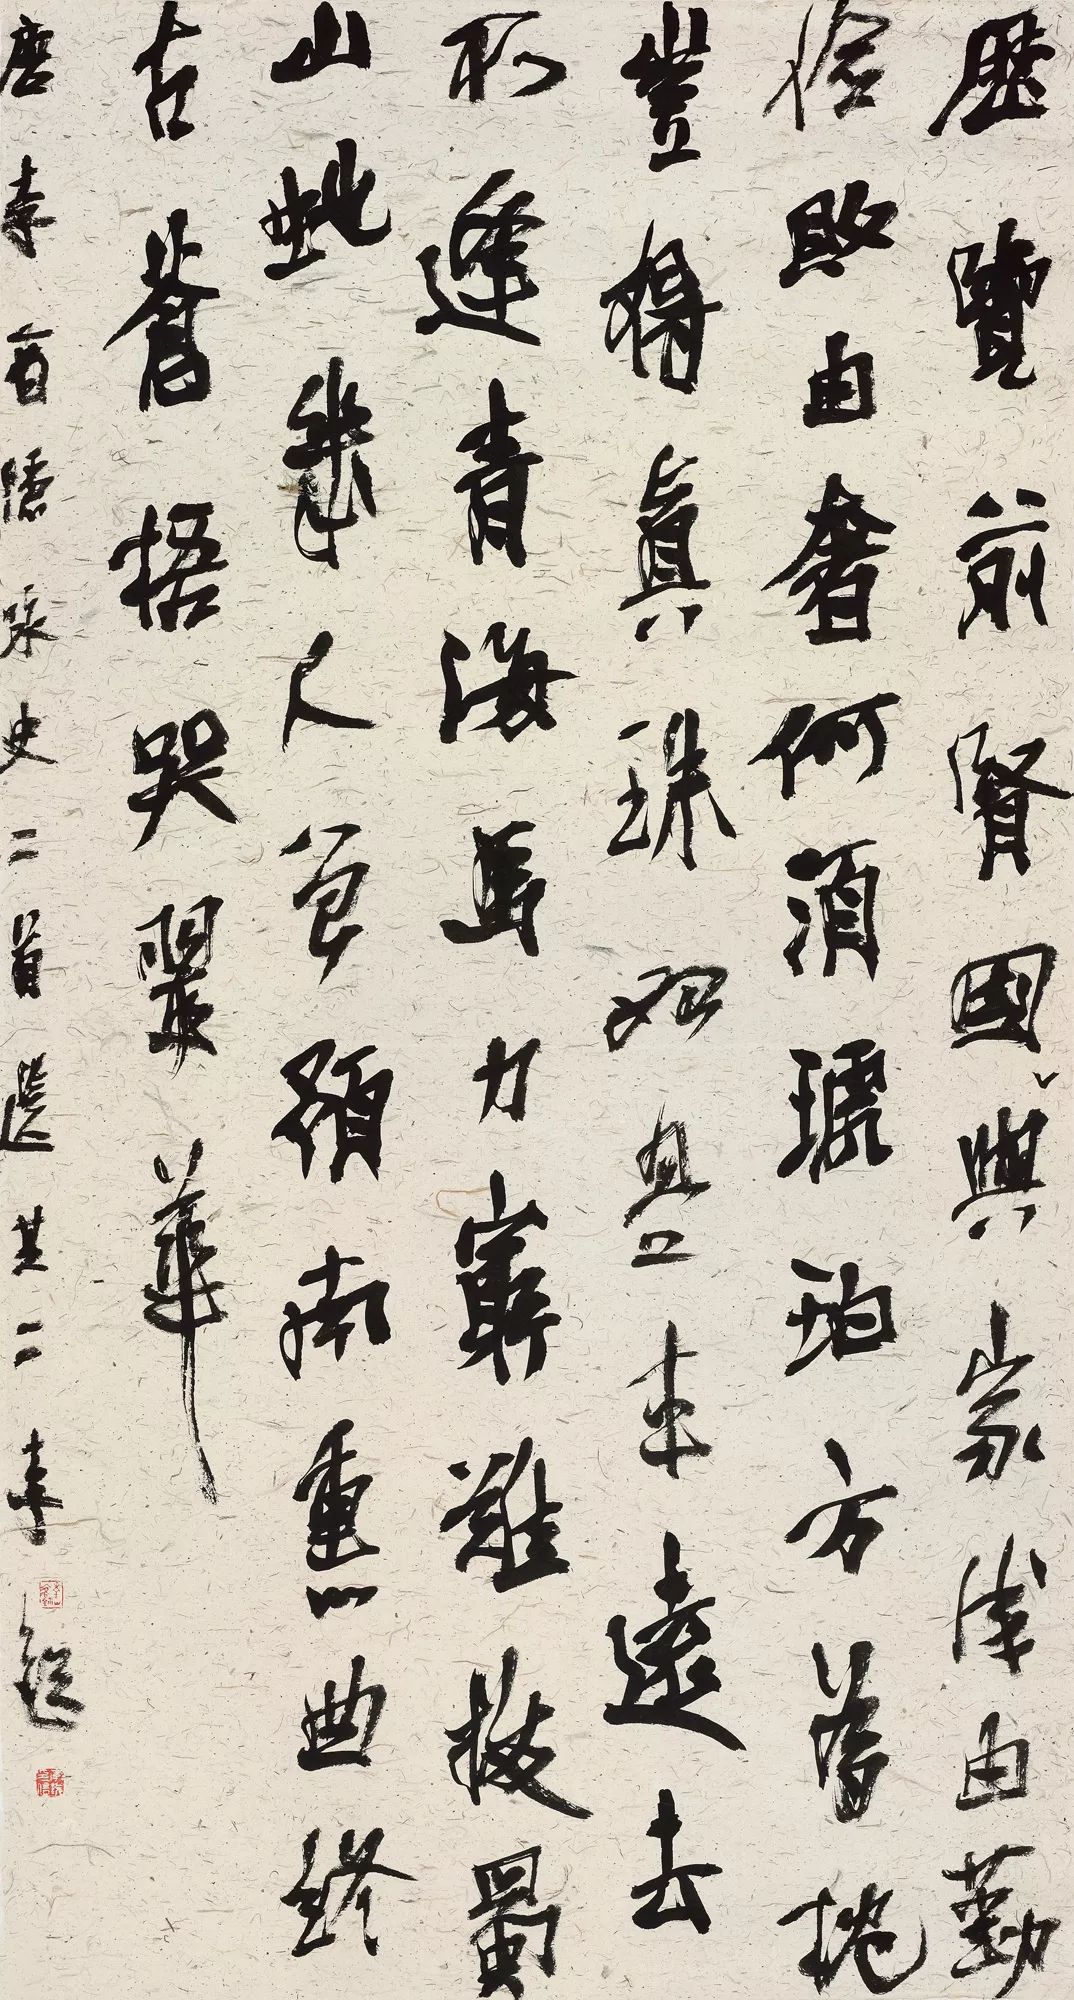 歷覽前賢國與家成由勤
儉敗由奢何須琥珀方為枕
豈得真珠始是車遠去
不逢青海馬力窮難拔蜀
山蛇幾人曾預南熏曲終
古蒼梧哭翠華
唐李商隱詠史二首選其二 李鐸